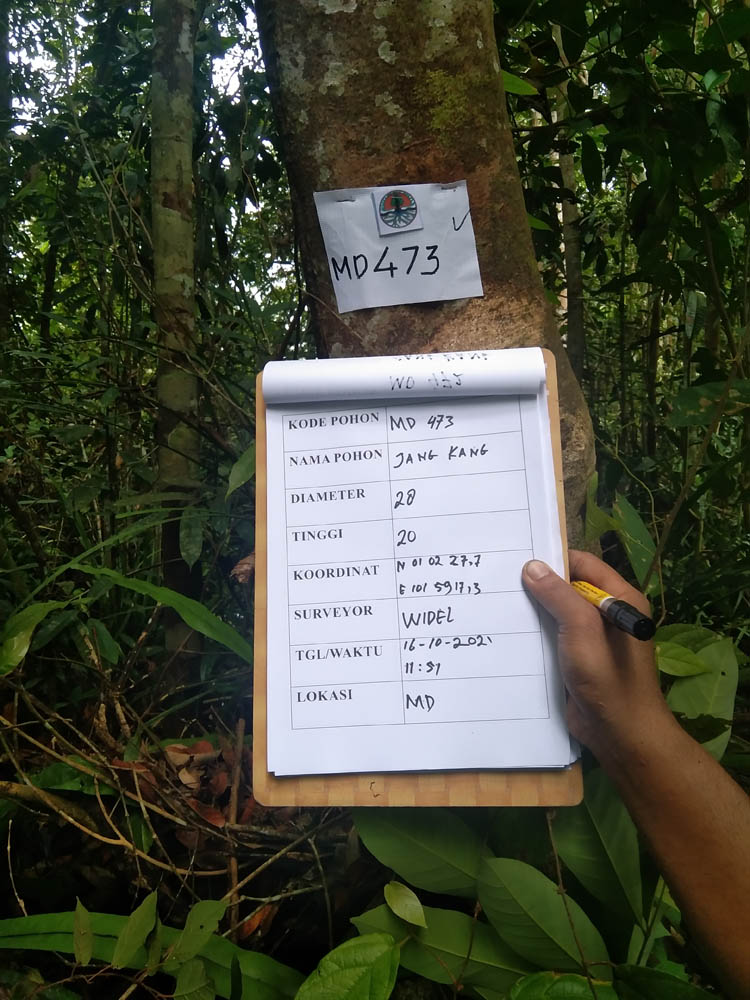 MD473
KODE POHON MD 473
NAMA POHON JANG KANG
DIAMETER 28
TINGGI 20
KOORDINAT N 01 02 27,7
E 101 59 17,3
SURVEYOR WIDEL
TGL/WAKTU 16-10-2021
11:51
LOKASI MD